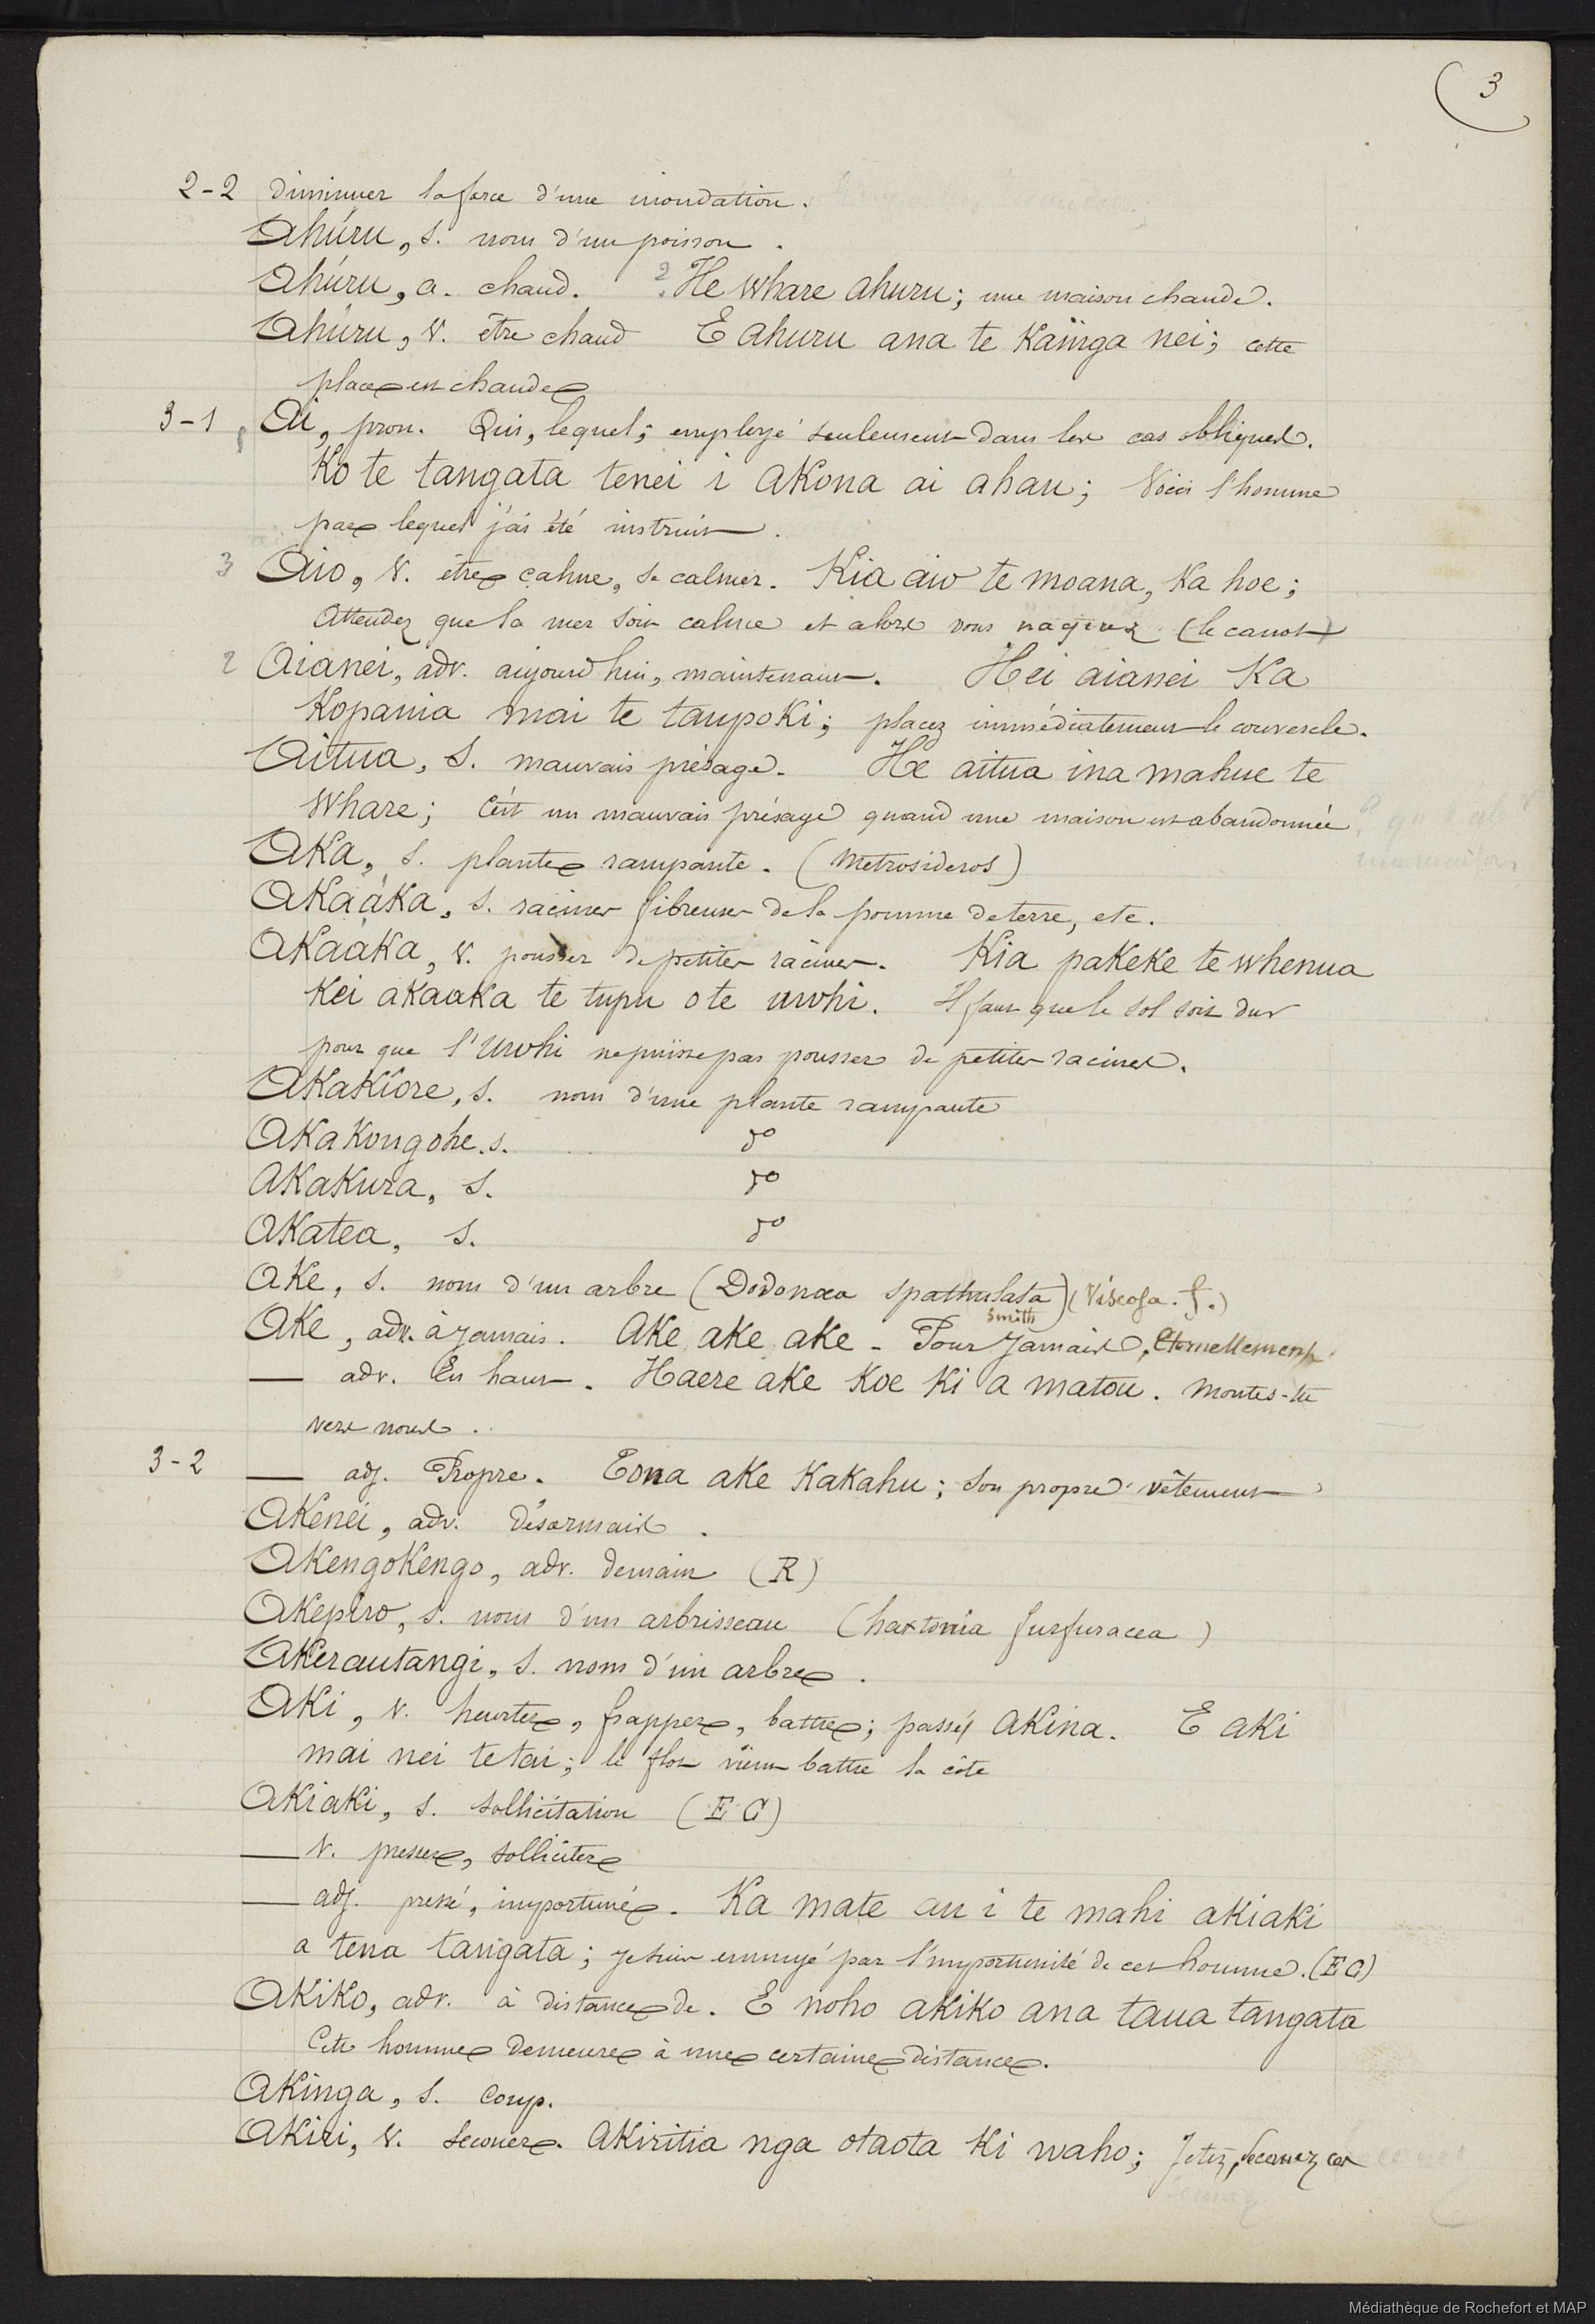 3
2-2 diminuer la force d'une inondation.
Ahúru, s. nom d'un poisson.
Ahúru, a. chaud. ? He whare ahuru; une maison chaude.
Ahúru, v. être chaud E ahuru ana te Kainga nei; cette
place est chaude
3-1 Ai, pron. Qui, lequel; employé seulement dans les cas obliques.
Ko te tangata tenei i akona ai ahau; Voici l'homme
par lequel j'ai été instruit.
3 Aio, v. être calme, se calmer. Kia aio te moana, ka hoe;
Attendez que la mer soit calme et alors vous nagerez (le canot)
2 Aianei, adv. aujourd'hui, maintenant. Hei aianei Ka
Kopania mai te taupoki; placez immédiatement le couvercle.
Aitua, s. mauvais présage. He aitua ina mahue te
whare; C'est un mauvais présage quand une maison est abandonnée
Aka, s. plante rampante. (Metrosideros)
Akaáka, s. racines fibreuses de la pomme de terre, etc.
Akaáka, v. pousser de petites racines. Kia pakeke te whenua
Kei akaaka te tupu o te uwhi. Il faut que le sol soit dur
pour que l'Uwhi ne puisse pas pousser de petites racines.
Akakiore, s. nom d'une plante rampante
Akakongohe. s. do
Akakura, s. do
Akatea, s. do
Ake, s. nom d'un arbre (Dodonœa spathulata) (Viscosa. f.)
Smith
Ake, adv. à jamais. Ake ake ake - Pour Jamais, éternellement
— adv. En haut. Haere ake Koe Ki a matou. Montes-tu
vers nous.
3-2 — adj. Propre. Eona ake Kakahu; son propre vêtement
Akenei, adv. désormais.
Akengokengo, adv. demain (R)
Akepiro, s. nom d'un arbrisseau (haxtonia furfuracea)
Akerautangi, s. nom d'un arbre.
Aki, v. heurter, frapper, battre; passé, Akina. E aki
mai nei te tai; le flot vient battre la côte
Akiaki, s. sollicitation (E C)
— v. presser, solliciter
— adj. pressé, importuné. Ka mate au i te mahi akiaki
a tena tangata; Je suis ennuyé par l'importunité de cet homme. (E C)
Akiko, adv. à distance de. E noho akiko ana taua tangata
Cette homme demeure à une certaine distance.
Akinga, s. coup.
Akiri, v. secouer. Akiritia nga otaota Ki waho; Jetez, secouez ces
Médiathèque de Rochefort et MAP